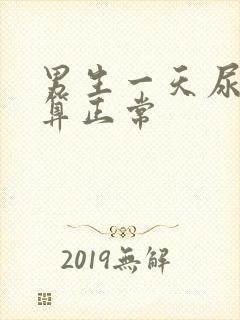 男生一天尿
算正常
2019無解